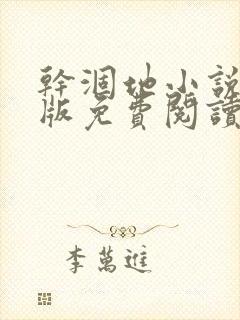 幹涸地小説
版免費閱讀
李萬進